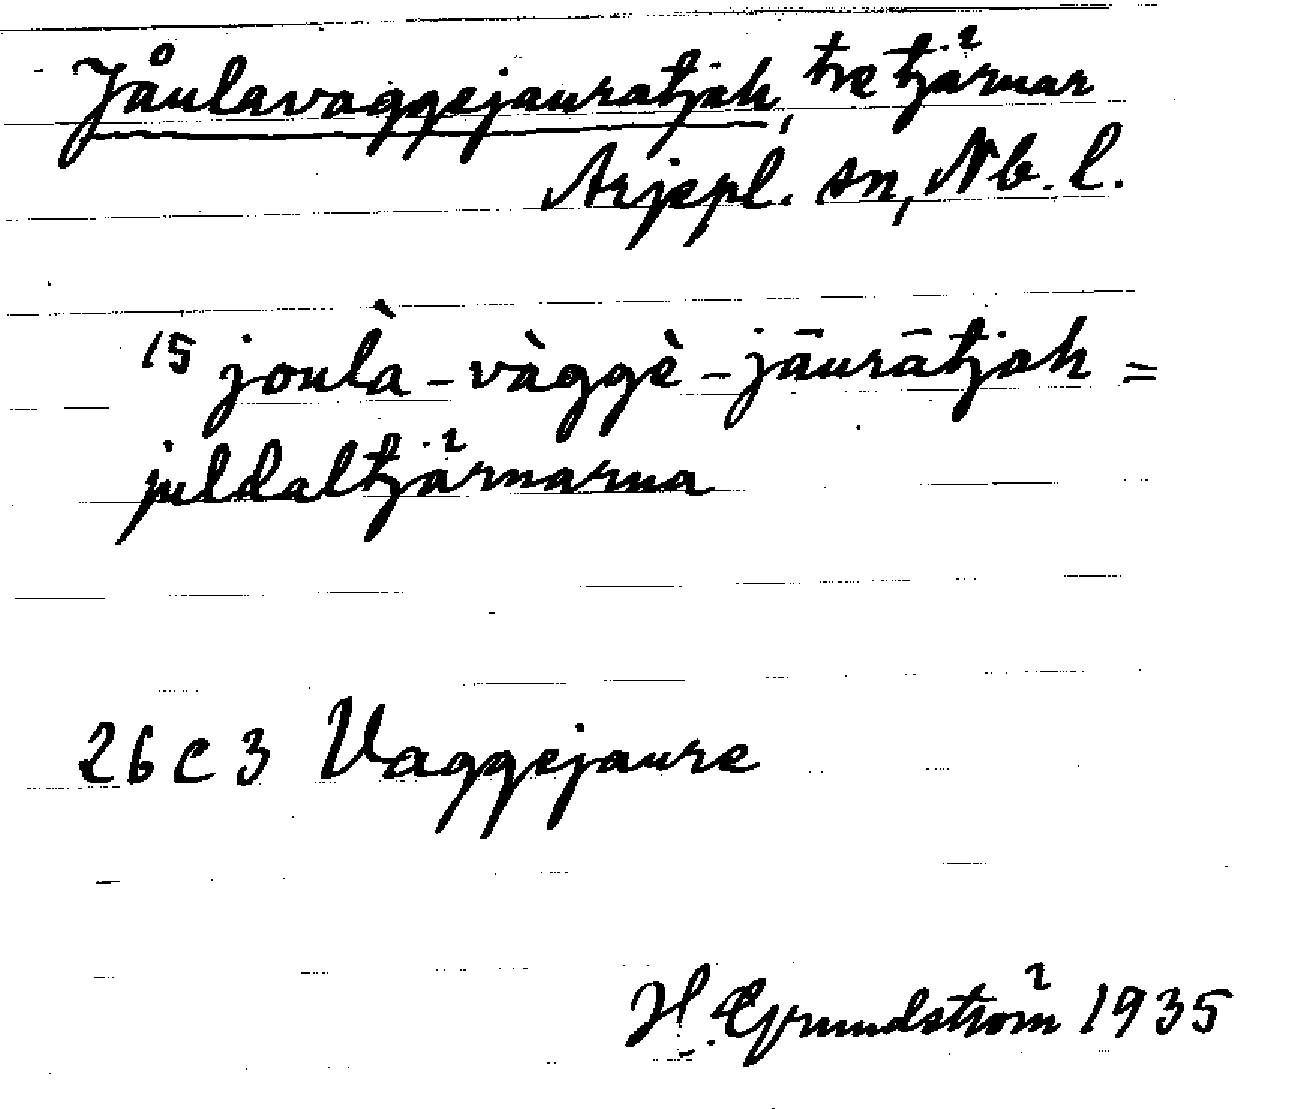 Jåulavaggejauratjah, tre tjärnar
Arjepl. sn, Nb. l.
15 joulà - vàggè - jāurātjah =
juldaltjärnarna
26 C 3 Vaggejaure
H. Grundström 1935